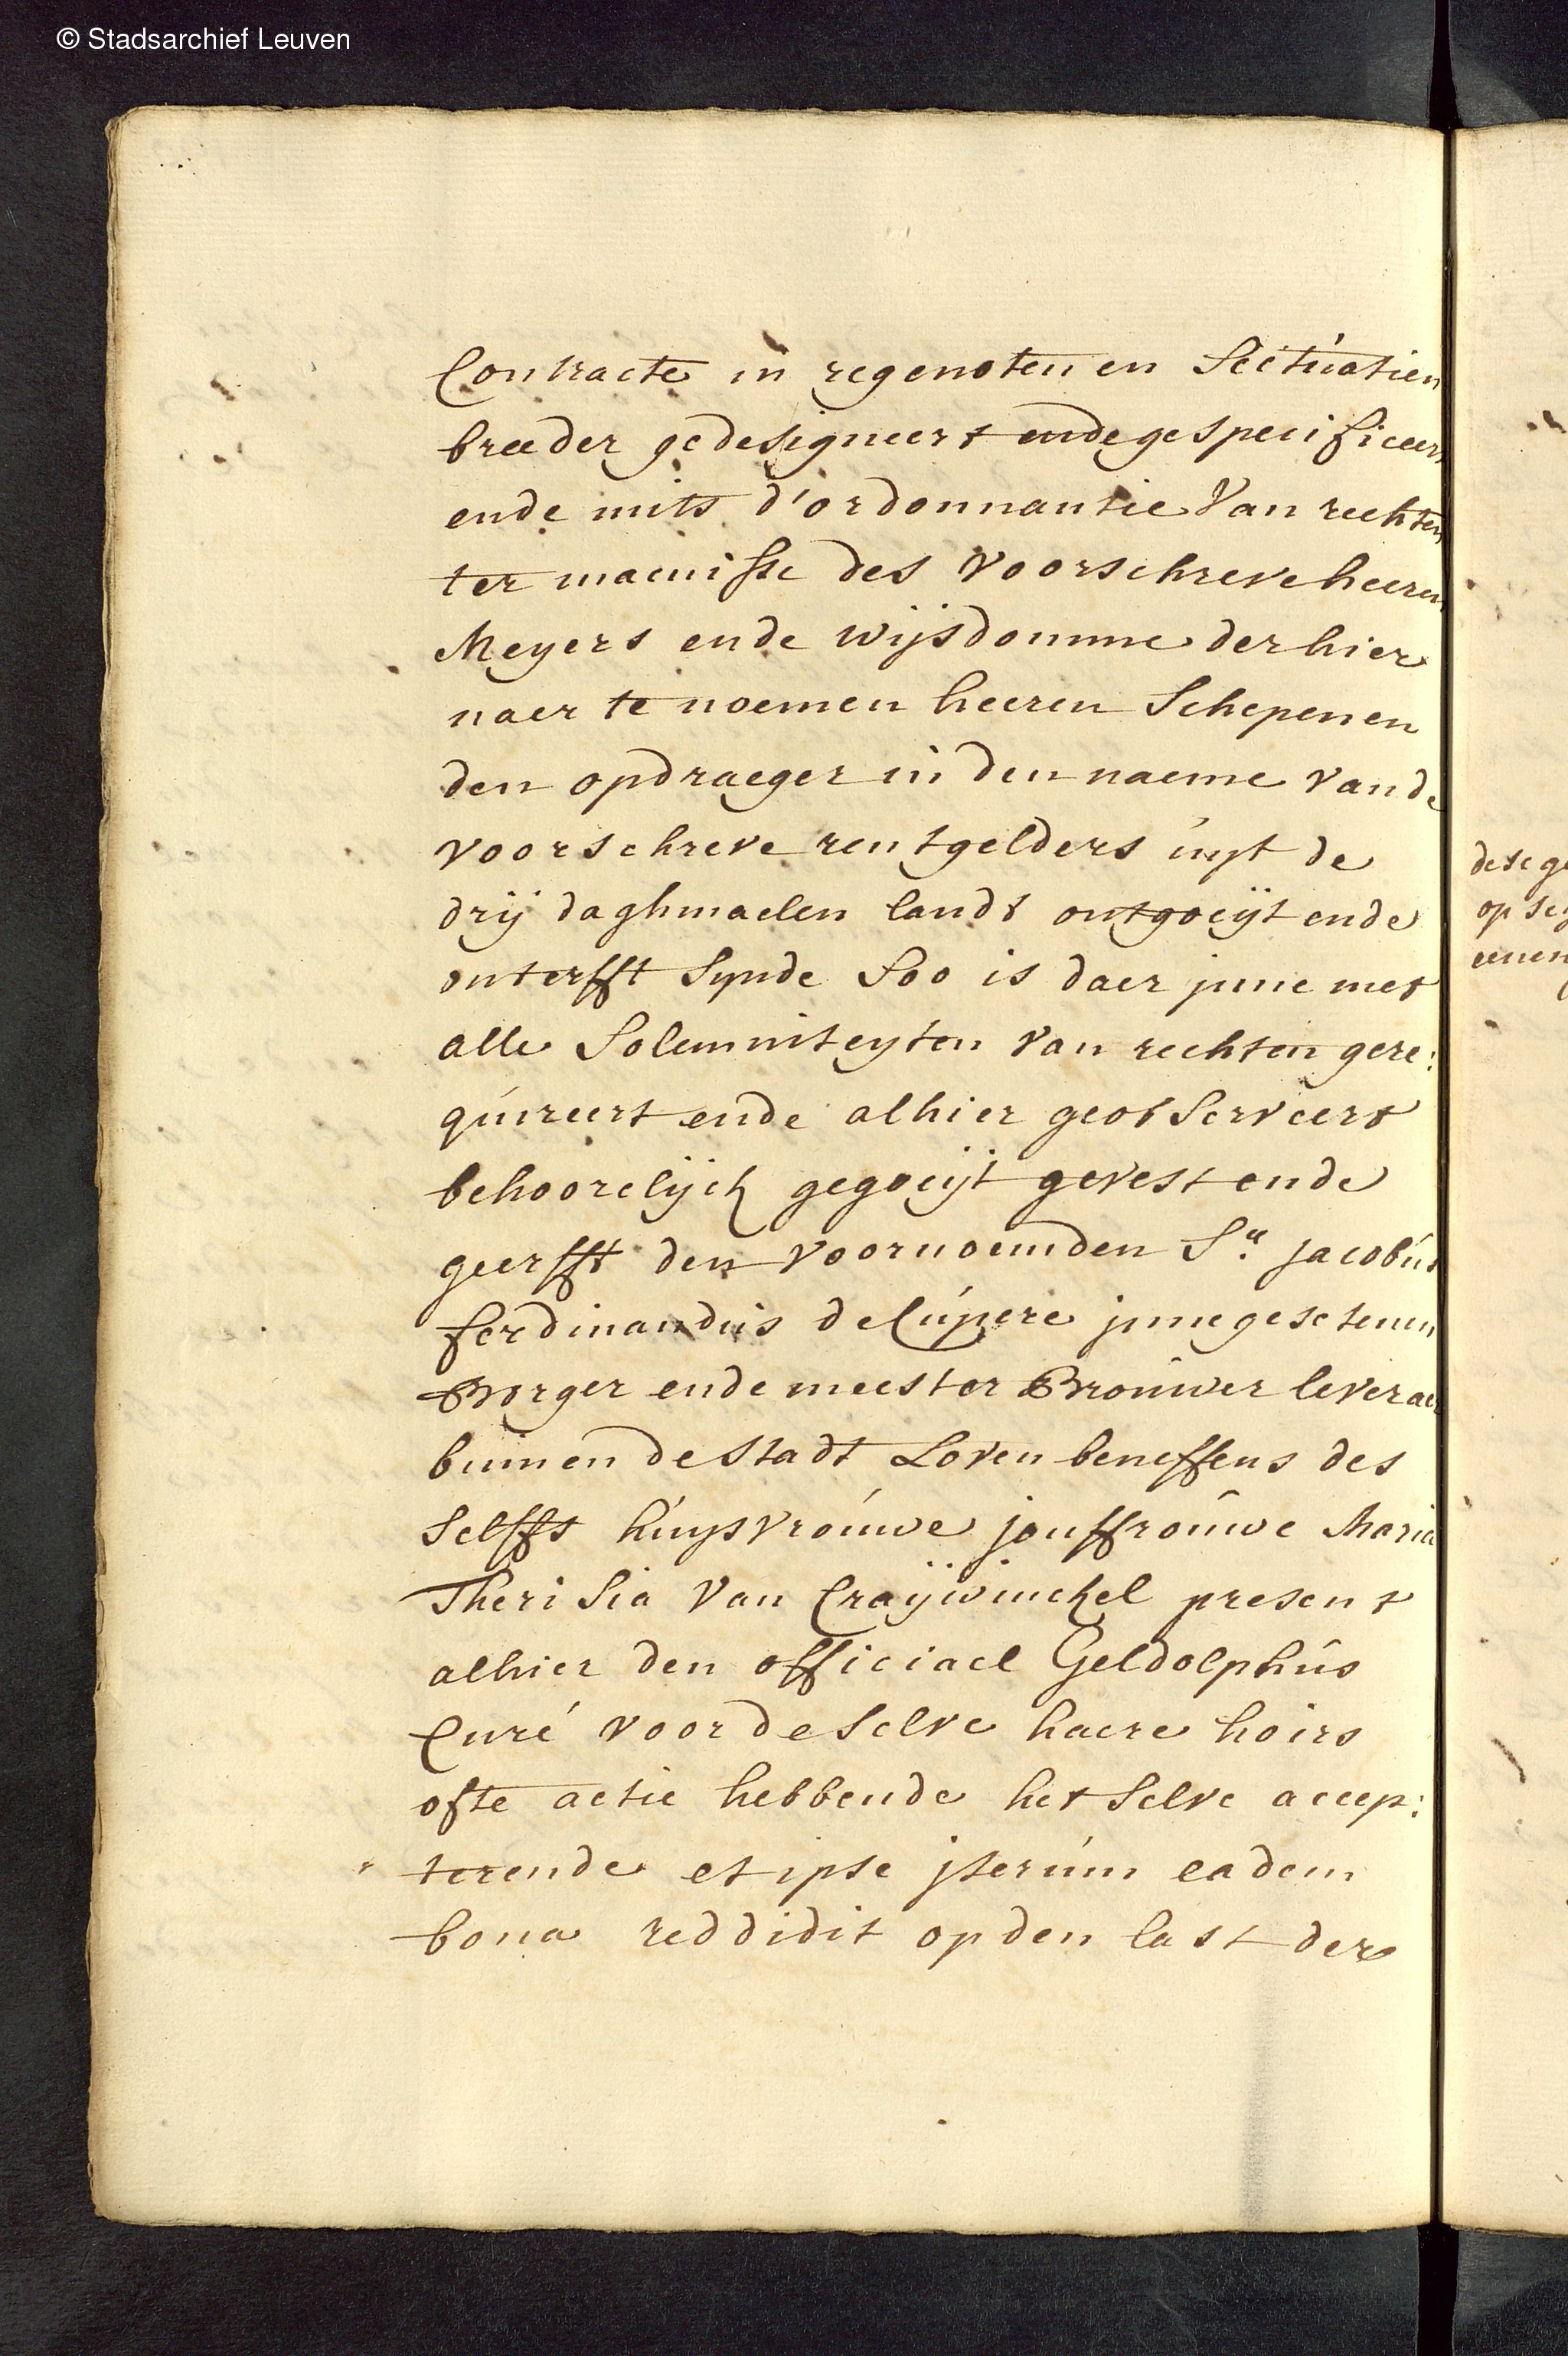 © Stadsarchief Leuven
Contracte in regenoten en Scitúatien
breeder gedesigneert ende gespecificeert
ende mits d'ordonnantie Van rechten
ter maenisse des Voorschreve heeren
Meyers ende wijsdomme der hier
naer te noemen heeren Schepenen
den opdraeger in den naeme Van de
voorschreve rentgelders úyt de
drij daghmaelen landt ontgoeijt ende
onterfft Synde Soo is daer jnne met
alle Solemniteyten Van rechten gere:
qúireert ende alhier geobserveert
behoorelijck gegoeijt gevest ende
geerfft den Voornoemden Sr. Jacobús
ferdinandús de Cúpere jnnegesetenen
Borger ende meester Broúwer leveraer
binnen de Stadt Loven beneffens des
Selffs húysvroúwe jouffroúwe Maria
Therisia Van Craijwinckel present
alhier den officiael Geldolphús
Curé voor de Selve haere hoirs
ofte actie hebbende het Selve accep:
terende et ipse jterúm eadem
bona reddidit op den last der
dese ge
op sey
eenen